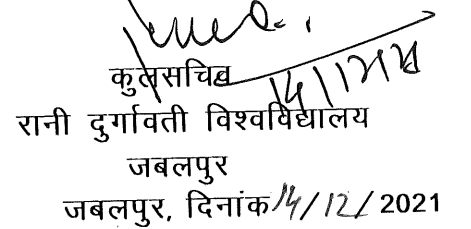 कुलसचिव
रानी दुर्गावती विश्वविद्यालय
जबलपुर
जबलपुर, दिनांक 14/12/2021